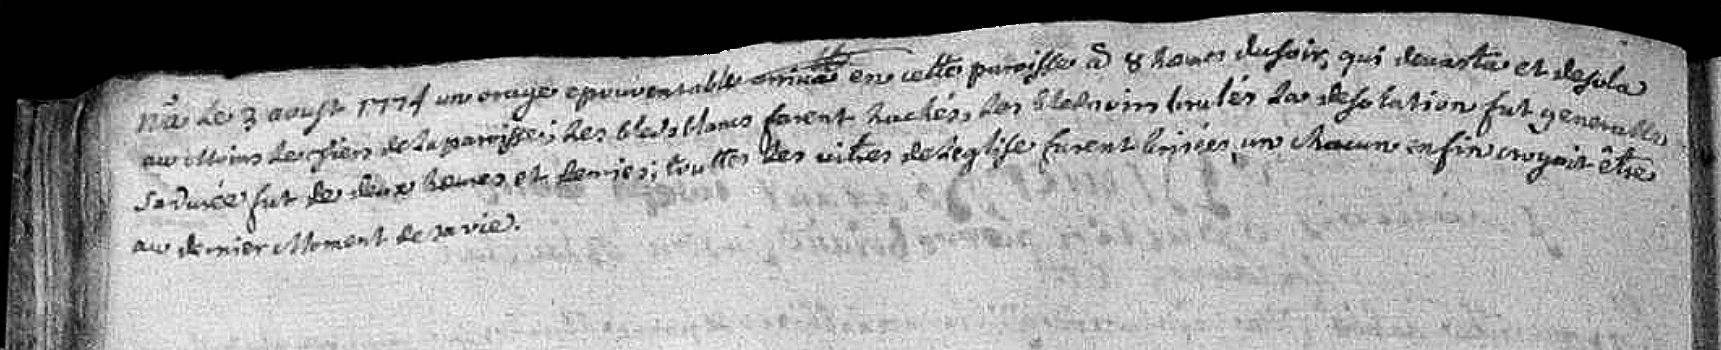 Nà Le 3 aoust 1774 un orage epouventable arriva en cette paroisse à 8 heures du soir, qui devasta et desola
au Moins Le tiers de La paroisse; Les bleds blancs furent hachés, Les bleds noirs brulés La desolation fut generalle
sa durée fut de deux heures et demies; touttes Les vitres de Leglise furent brisées, un chacun enfin croyoit être
au dernier Moment de sa vie.